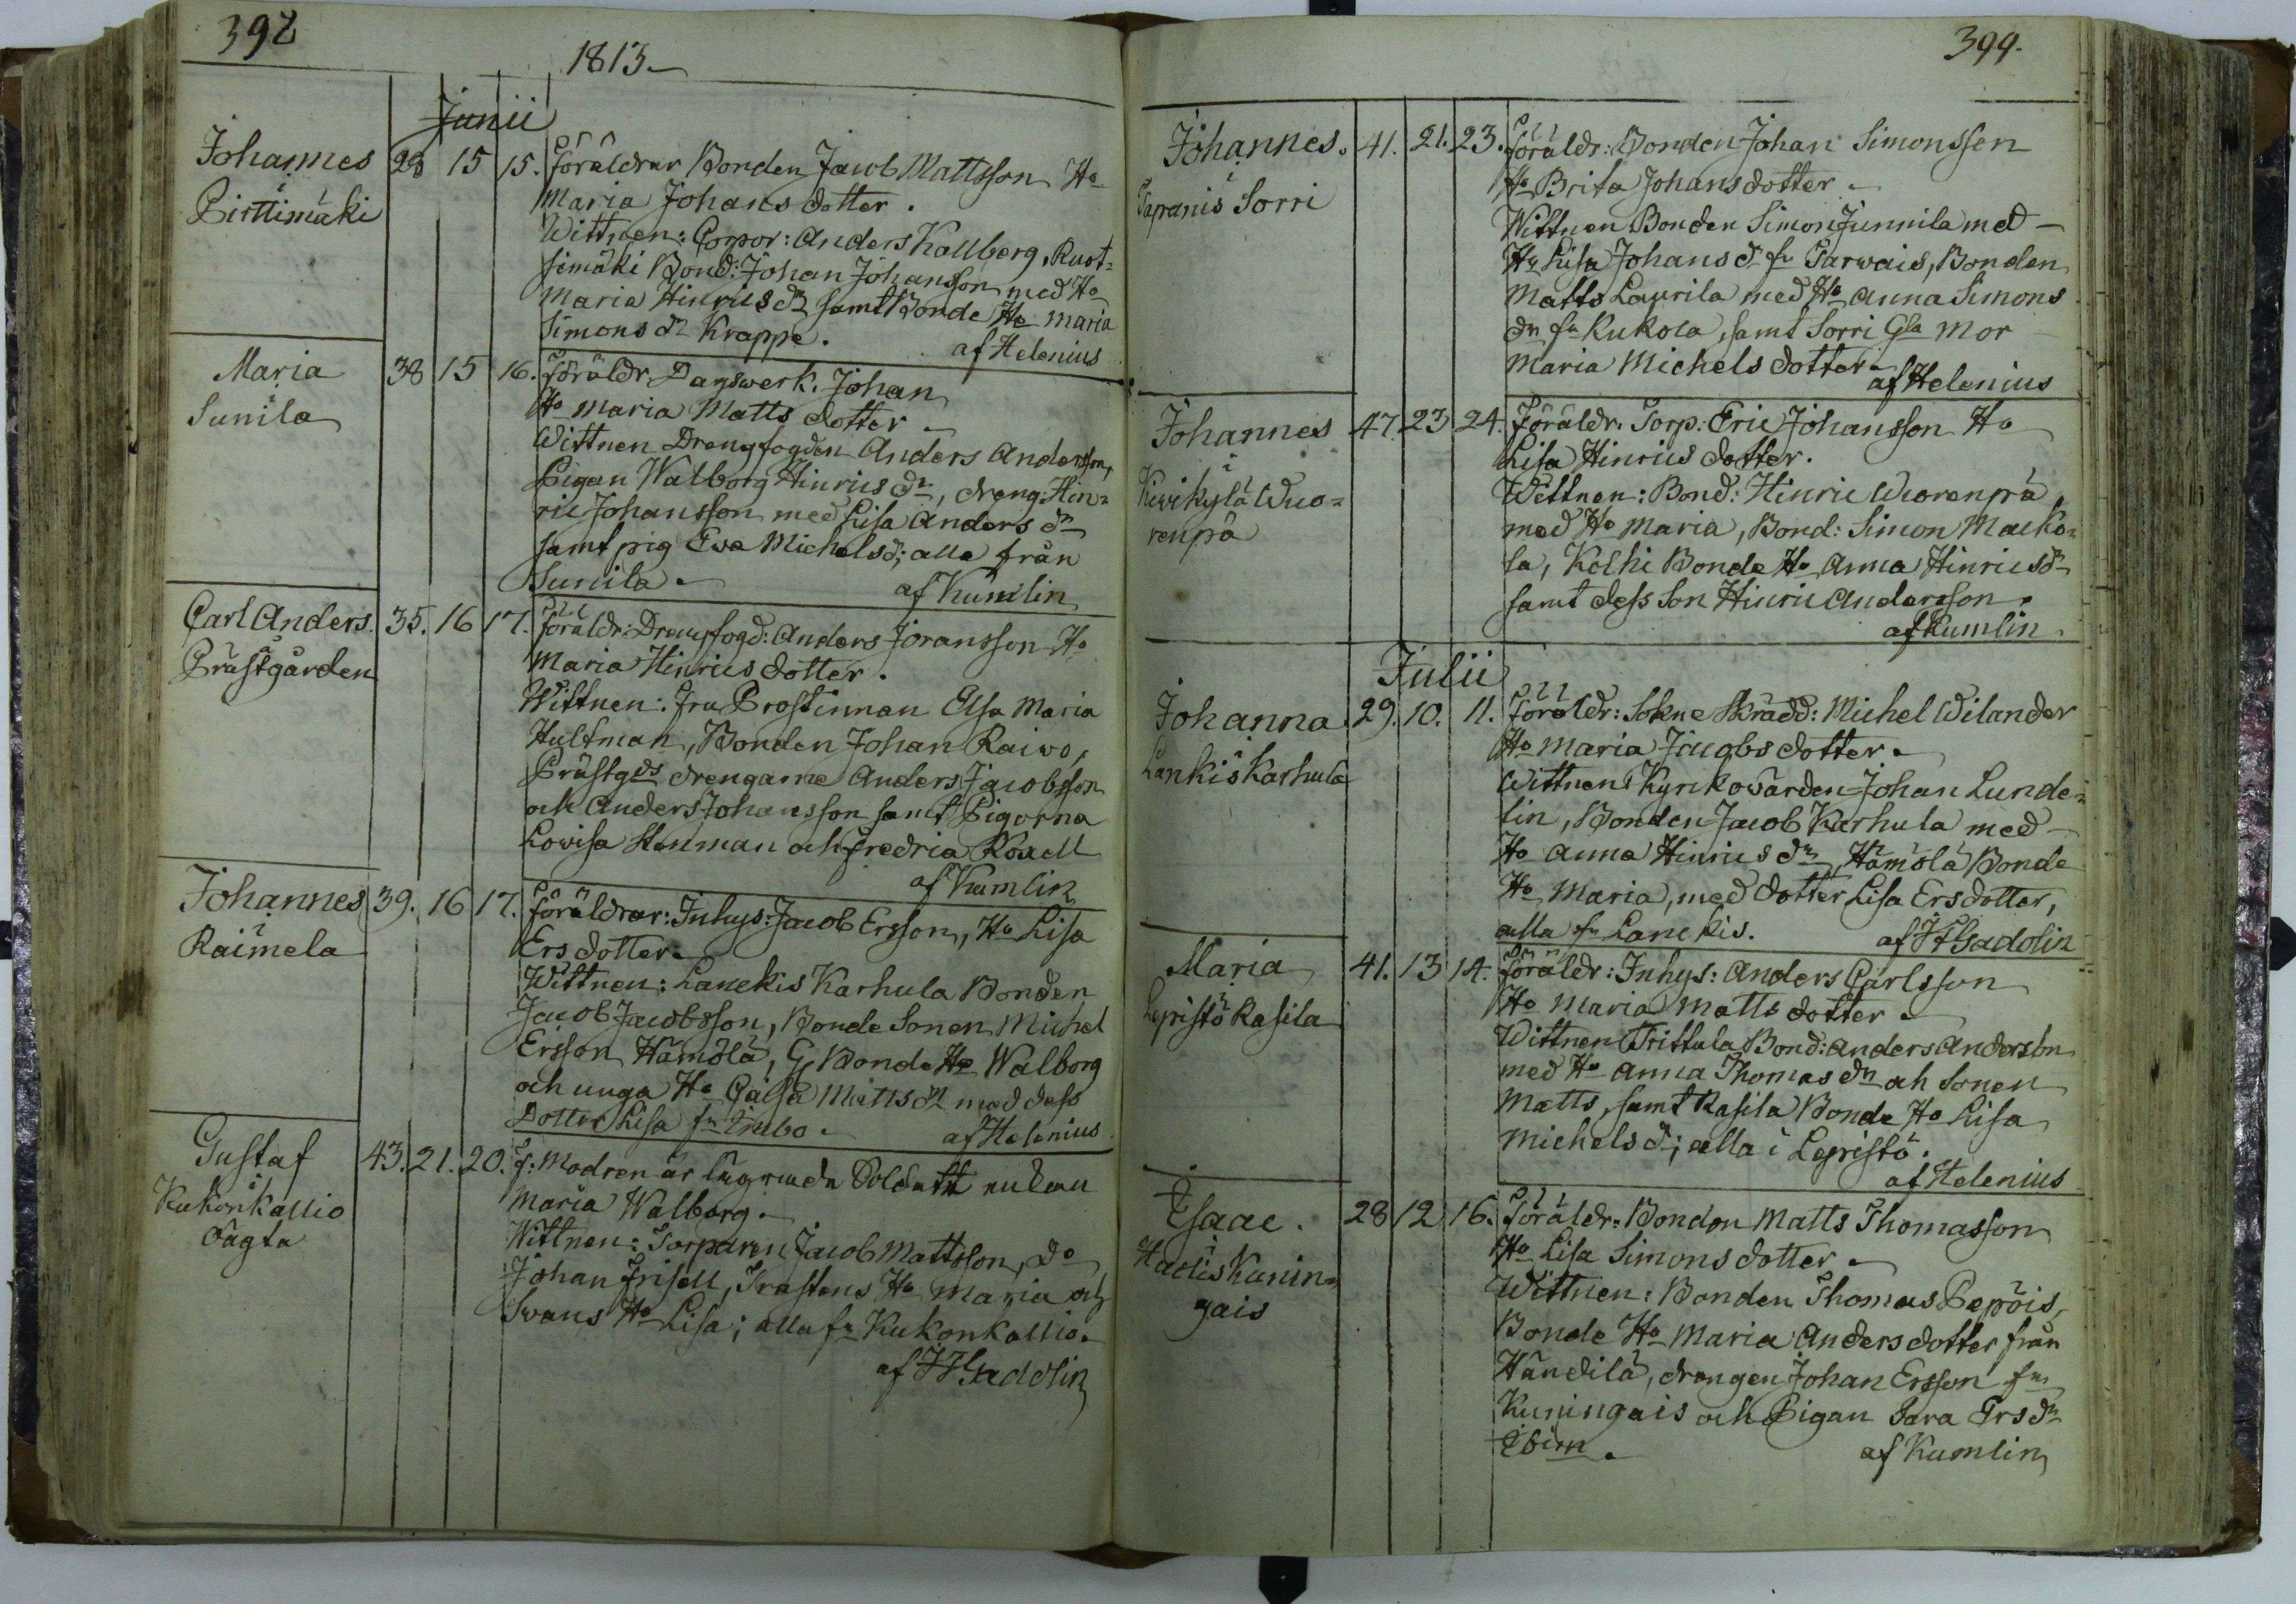 392
1813.
Junii
Johannes 28 15 15. Föräldrar Bonden Jacob Mattsson Ha
i Maria Johans dotter.
Pirttimäki Wittnen: Corpor: Anders Kallberg, Ruot-
simäki Bond: Johan Johansson med Ha
Maria Hinrics dr samt Bonde Ha Maria
Simons dr Krappe.
af Helenius
Maria 38 15 16. Föräldr Dagswerk. Johan
i Ha Maria Matts dotter
Sunila Wittnen Drengfogden Anders Andersson,
Pigan Walborg Hinrics dr, dreng: Hin-
ric Johansson med Lisa Anders dr
samt pig Ewa Michelsd; alla från
Sunila.
af Kumlin
Carl Anders. 35. 16 17. Föräldr: Drengfogd: Anders Joransson Ha
å Maria Hinrics dotter.
Prästgården Wittnen: Fru Prostinnan Elsa Maria
Hultman, Bonden Johan Raiwo,
Prästgds drengarne Anders Jacobsson
och Anders Johansson samt Pigorna
Lovisa Stenman och Fredrica Roxell
af Kumlin
Johannes 39. 16 17. Föräldrar: Inhys: Jacob Ersson, Ha Lisa
i Ers dotter.
Raimela Wittnen: Lanckis Karhula Bonden
Jacob Jacobsson, Bonde Sonen Michel
Ersson Hämölä, G Bonde Ha Walborg
och unga Ha Caisa Matts dr med dess
Dotter Lisa fn
af Helenius
Gustaf 43. 21. 20. f: Modren är lägrade Soldatt enkan
i Maria Walborg.
Kukonkallio Wittnen: Torparen Jacob Mattsson, do
Johan Frisell, Trastens Ha Maria och
Swans Ha Lisa; alla fn Kukonkallio.
af JF Gaddolin
399.
Johannes. 41. 21. 23. Föräldr: Bonden Johan Simonsson
i Ha Brita Johans dotter.
Tapanis Sorri Wittnen Bonden Simon Junnila med
Ha Lisa Johans dr fn Tarwais, Bonden
Matts Laurila med Ha Anna Simons
dn fn Kukola, samt Sorri Gla Mor
Maria Michels dotter.
af Helenius
Johannes 47. 23 24. Föräldr. Torp: Eric Johansson Ha
i Lisa Hinrics dotter.
Kiwikylä Wuo- Wittnen: Bond: Hinric Wuorenpä
renpä med Ha Maria, Bond: Simon Macko-
la, Kolhi Bonde Ha Anna Hinricsdr
samt dess Son Hinric Andersson.
af Kumlin
Julii
Johanna 29. 10. 11. Föräldr: Sokne Skrädd: Michel Wilander
i Ha Maria Jacobs dotter.
Lankis Karhula Wittnen Kyrckowärden Johan Lunde-
lin, Bonden Jacob Karhula med
Ha Anna Hinrics dn Hämölä Bonde
Ha Maria, med dotter Lisa Ersdotter,
alla fn Lanckis.
af JF Gadolin
Maria 41. 13 14. Föräldr: Inhys: Anders Carlsson
i Ha Maria Matts dotter.
Lepistö Rasila Wittnen Prittula Bond: Anders Andersson
med Ha Anna Thomas dn och Sonen
Matts, samt Rasila Bonde Ha Lisa
Michelsd; alla i Lepistö.
af Helenius
Isaac. 28 12 16. Föräldr: Bonden Matts Thomasson
i Ha Lisa Simons dotter.
Hadis Kunin- Wittnen: Bonden Thomas Pepöis,
gais Bonde Ha Maria Anders dotter från
Händilä, drengen Johan Ersson fn
Kuningais och Pigan Sara Ers dn
Ibim.
af Kumlin